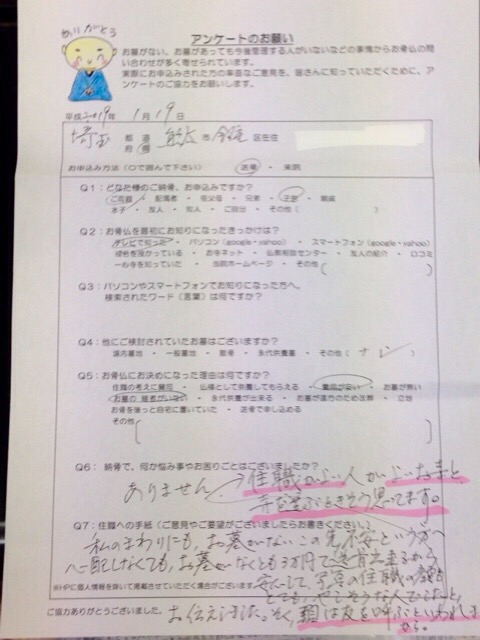 ありがとう
アンケートのお願い
お墓がない、お墓があっても今後管理する人がいないなどの事情からお骨仏の問
い合わせが多く寄せられています。
実際にお申込みされた方の率直なご意見を、皆さんに知っていただくために、ア
ンケートのご協力をお願いします。
平成2019年 1月19日
埼玉 都 道 府 県 市 区在住
お申込み方法（○で囲んで下さい） 送骨 ・ 来院
Q1：どなた様のご納骨、お申込みですか？
ご両親 ・ 配偶者 ・ 祖父母 ・ 兄弟 ・ 子供 ・ 親戚
水子 ・ 友人 ・ 知人 ・ ご自分 ・ その他（ ）
Q2：お骨仏を最初にお知りになったきっかけは？
テレビで知った ・ パソコン（google・yahoo） ・ スマートフォン（google・yahoo）
お寺ネット ・ 仏事相談センター ・ 友人の紹介 ・ 口コミ
一心寺を知っていた ・ 当院ホームページ ・ その他
Q3：パソコンやスマートフォンでお知りになった方へ。
検索されたワード（言葉）は何ですか？
Q4：他にご検討されていたお墓はございますか？
境内墓地 ・ 一般墓地 ・ 散骨 ・ 永代供養墓 ・ その他（ ナシ ）
Q5：お骨仏にお決めになった理由は何ですか？
住職の考えに賛同 ・ 仏様として供養してもらえる ・ 費用が安い ・ お墓が無い
お墓の継者がいない ・ 永代供養が出来る ・ お墓が遠方のため改葬 ・ 立地
お骨を後っと自宅に置いていた ・ 送骨で申し込める
その他
Q6：納骨で、何か悩み事やお困りごとはございましたか？
ありません 住職がよい人がよいお寺と
思ってます。
Q7：住職への手紙（ご意見やご要望がございましたらお書きください。）
私のまわりにも、お墓がないこの先不安という方へ
心配しなくても、お墓がなくとも3万円で 出来るから
安心して、 住職の顔も
とても、やさしそうな人でした
※HPに個人情報を除いて掲載させていただく場合がございます。
ご協力ありがとうございました。
お伝えしました。 類は友を呼ぶといわれますから。